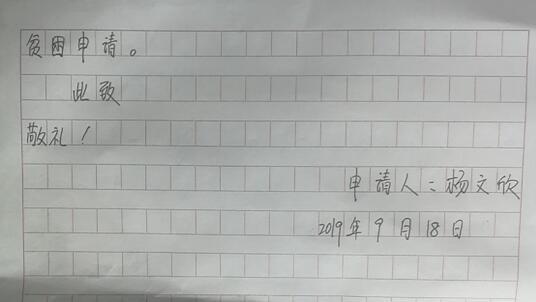 贫困申请。
此致
敬礼！
申请人：杨文欣
2019年9月18日